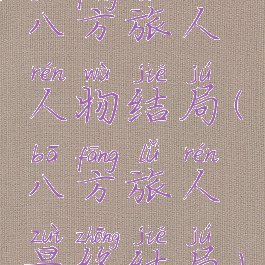 八方旅人
rén wù jié jú
人物结局(
bā fāng lǚ rén
八方旅人
zuì zhōng jié jú
最终结局)